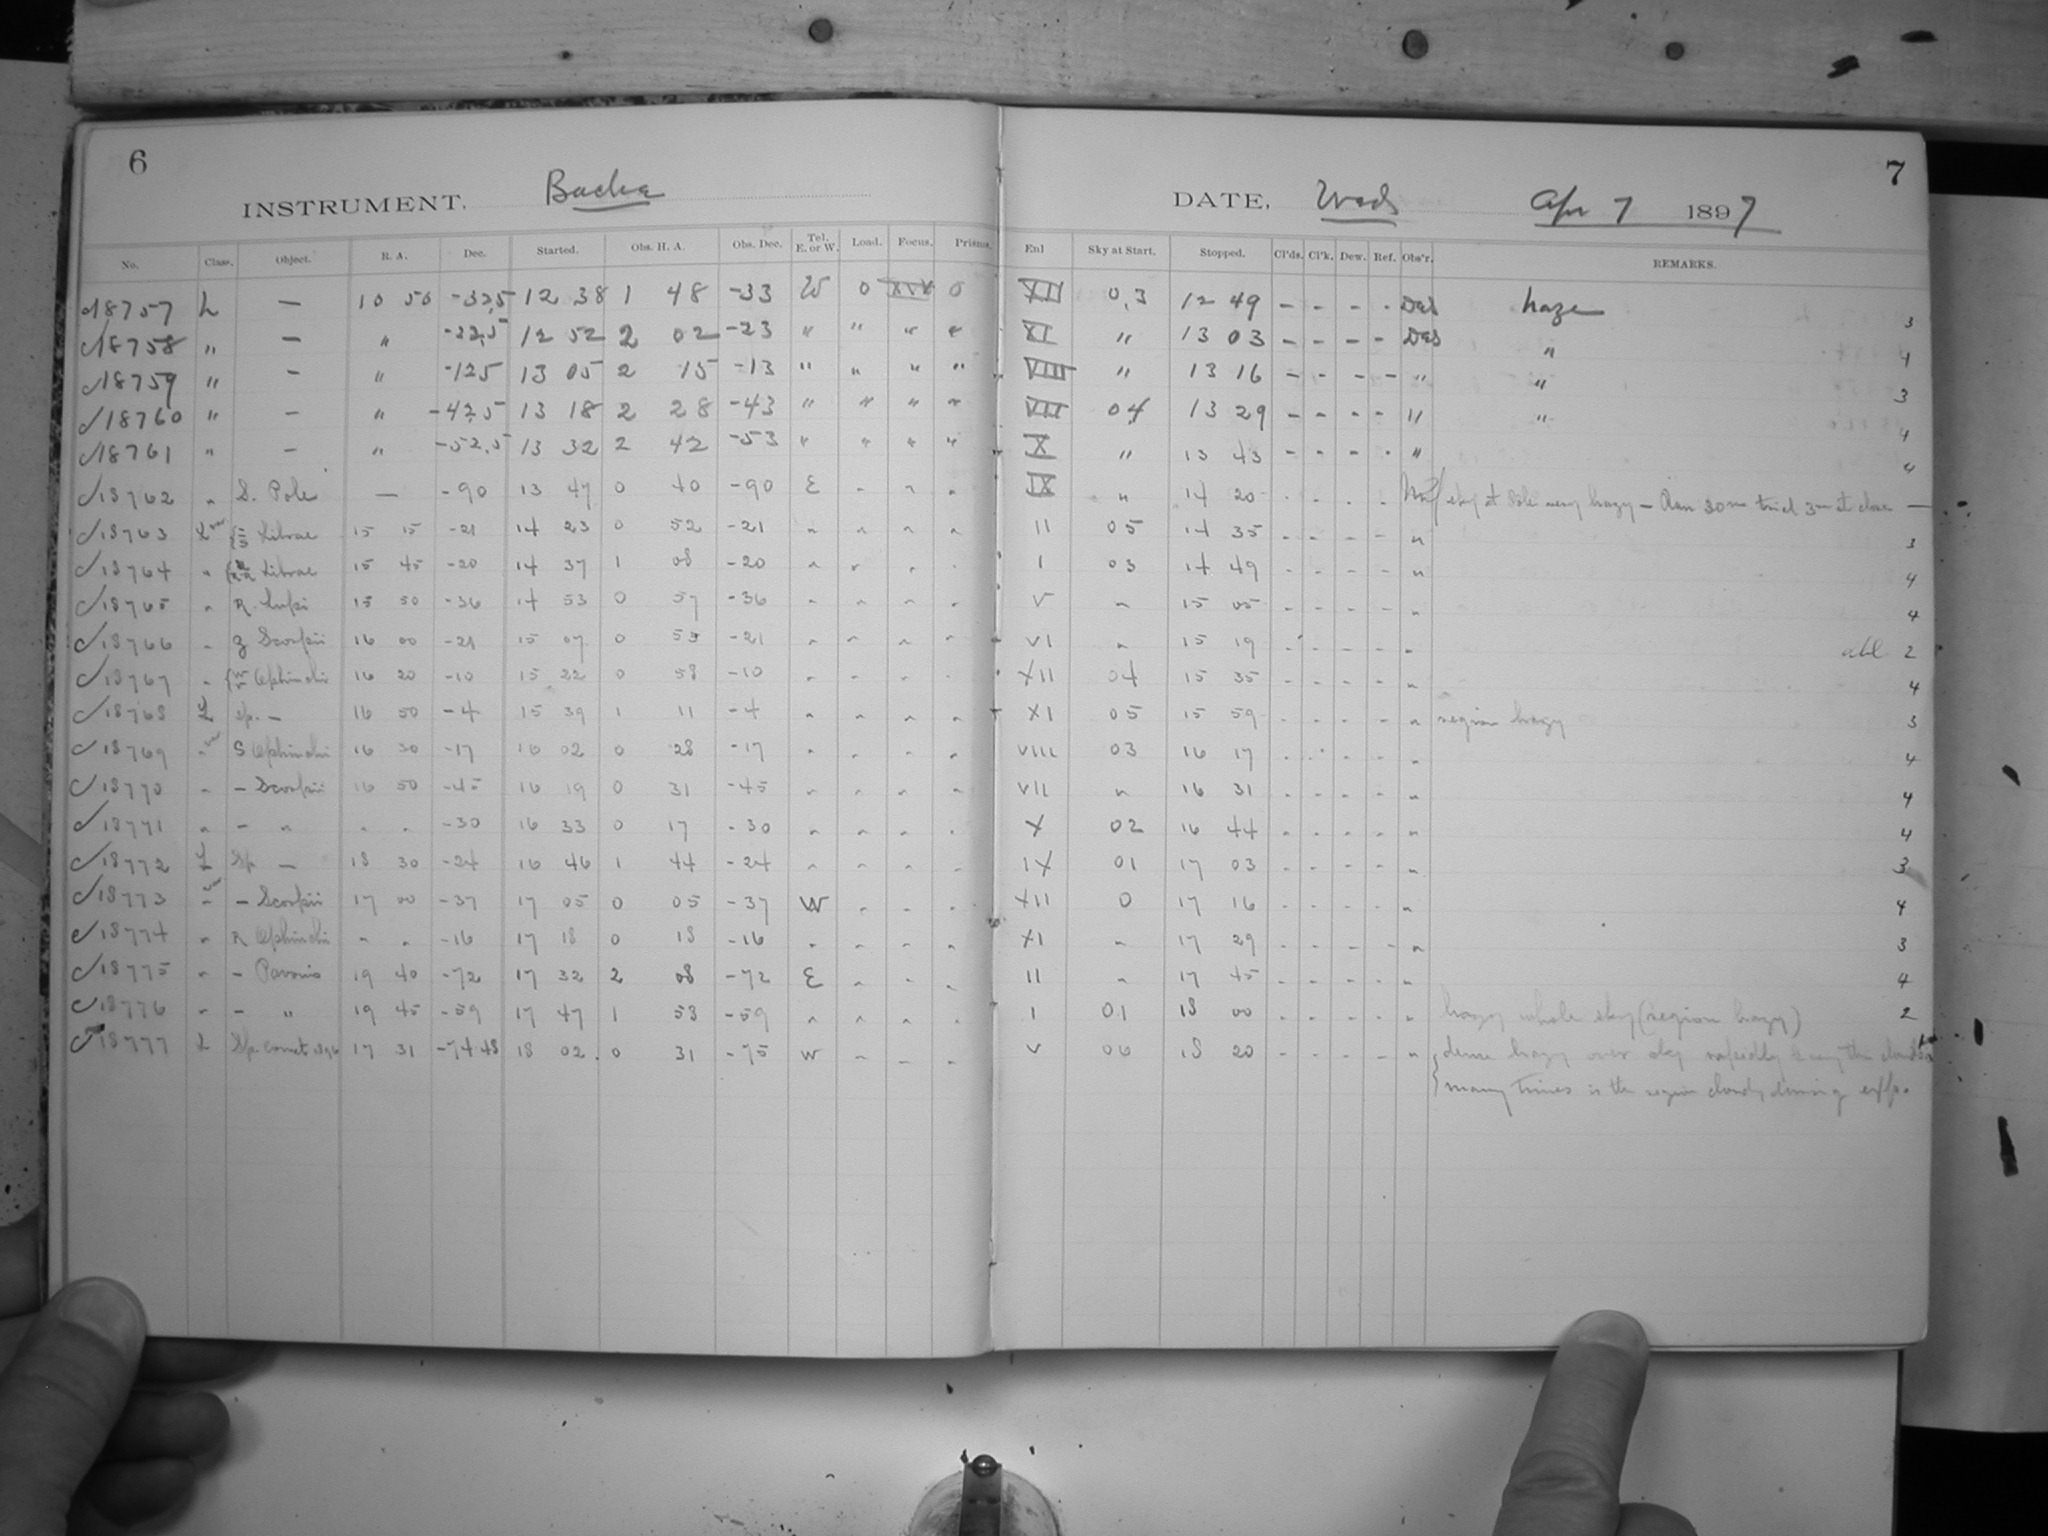 6
INSTRUMENT, Bache
No. Class. Object. R. A. Dec. Started. Obs. H. A. Obs. Dec. Tel. E. or W. Load. Focus. Prisms.
18757 L — 10 50 -32.5 12 38 1 48 -33 W 0 0
18758 " — " -22.5 12 52 2 02 -23 " " " "
18759 " - " -12.5 13 05 2 15 -13 " " " "
18760 " - " -42.5 13 18 2 28 -43 " " " "
18761 " - " -52.5 13 32 2 42 -53 " " " "
18762 " S. Pole — -90 13 47 0 40 -90 E - " "
18763 L Librae 15 15 -21 14 23 0 52 -21 " " " "
18764 " Librae 15 45 -20 14 37 1 08 -20 " " " "
18765 " R Lupi 15 50 -36 14 53 0 57 -36 " " " "
18766 " Z Scorpii 16 00 -21 15 07 0 53 -21 " " " "
18767 " Ophiuchi 16 20 -10 15 22 0 58 -10 " " " "
18768 L Sp. — 16 50 -4 15 39 1 11 -4 " " " "
18769 " S Ophiuchi 16 30 -17 16 02 0 28 -17 " " " "
18770 " - Scorpii 16 50 -45 16 19 0 31 -45 " " " "
18771 " - " " " -30 16 33 0 17 -30 " " " "
18772 L Sp. — 18 30 -24 16 46 1 44 -24 " " " "
18773 " - Scorpii 17 00 -37 17 05 0 05 -37 W " " "
18774 " R Ophiuchi " " -16 17 18 0 18 -16 " " " "
18775 " - Pavonis 19 40 -72 17 32 2 08 -72 E " " "
18776 " - " 19 45 -59 17 47 1 53 -59 " " " "
18777 L Sp. Comet 1896 17 31 -74 48 18 02 0 31 -75 W " " "
7
DATE, Weds Apr 7 1897
Enl Sky at Start. Stopped. Cl'ds. Cl'k. Dew. Ref. Obs'r. REMARKS.
XII 0.3 12 49 - - - - haze 3
XI " 13 03 - - - - " 4
VIII " 13 16 - - - - " " 3
VII 04 13 29 - - - - " " 4
X " 13 43 - - - - " 4
IX " 14 20 - - - - sky at Pole very hazy —
II 05 14 35 - - - - " 3
I 03 14 49 - - - - " 4
V " 15 05 - - - - " 4
VI " 15 19 - - - - " 2
XII 04 15 35 - - - - " 4
XI 05 15 59 - - - - " region hazy 3
VIII 03 16 17 - - - - " 4
VII " 16 31 - - - - " 4
X 02 16 44 - - - - " 4
IX 01 17 03 - - - - " 3
XII 0 17 16 - - - - " 4
XI " 17 29 - - - - " 3
II " 17 45 - - - - " 4
I 01 18 00 - - - - " hazy whole sky (region hazy) 2
V 06 18 20 - - - - " dense hazy over sky rapidly
many times is the region cloudy during exp.